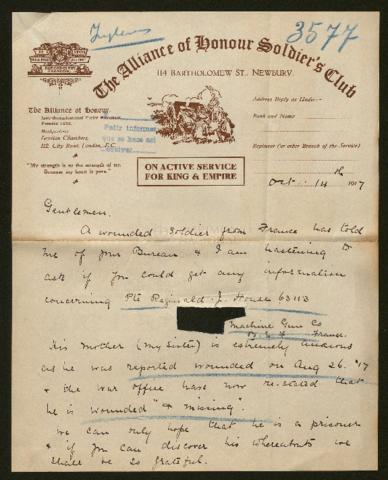 Inglesa
3577
The Alliance of Honour Soldier's Club
114 BARTHOLOMEW ST., NEWBURY.
The Alliance of Honour
Founded 1903.
Headquarters
Leysian Chambers,
112, City Road, London, E.C.
"My strength is as the strength of ten
Because my heart is pure."
Pedir informes
Address Reply as Under:—
Rank and Name
Regiment (or other Branch of the Service)
ON ACTIVE SERVICE
FOR KING & EMPIRE
Oct. 14th 1917
Gentlemen.
A wounded soldier from France has told
me of your Bureau & I am hastening to
ask if you could get any information
concerning Pte Reginald J. House 63113
Machine Gun Co
B.E.F. France.
His mother (my sister) is extremely anxious
as he was reported wounded on Aug 26. '17
& the War Office have now re-stated that
he is wounded "& missing".
We can only hope that he is a prisoner
& if you can discover his whereabouts we
shall be so grateful.